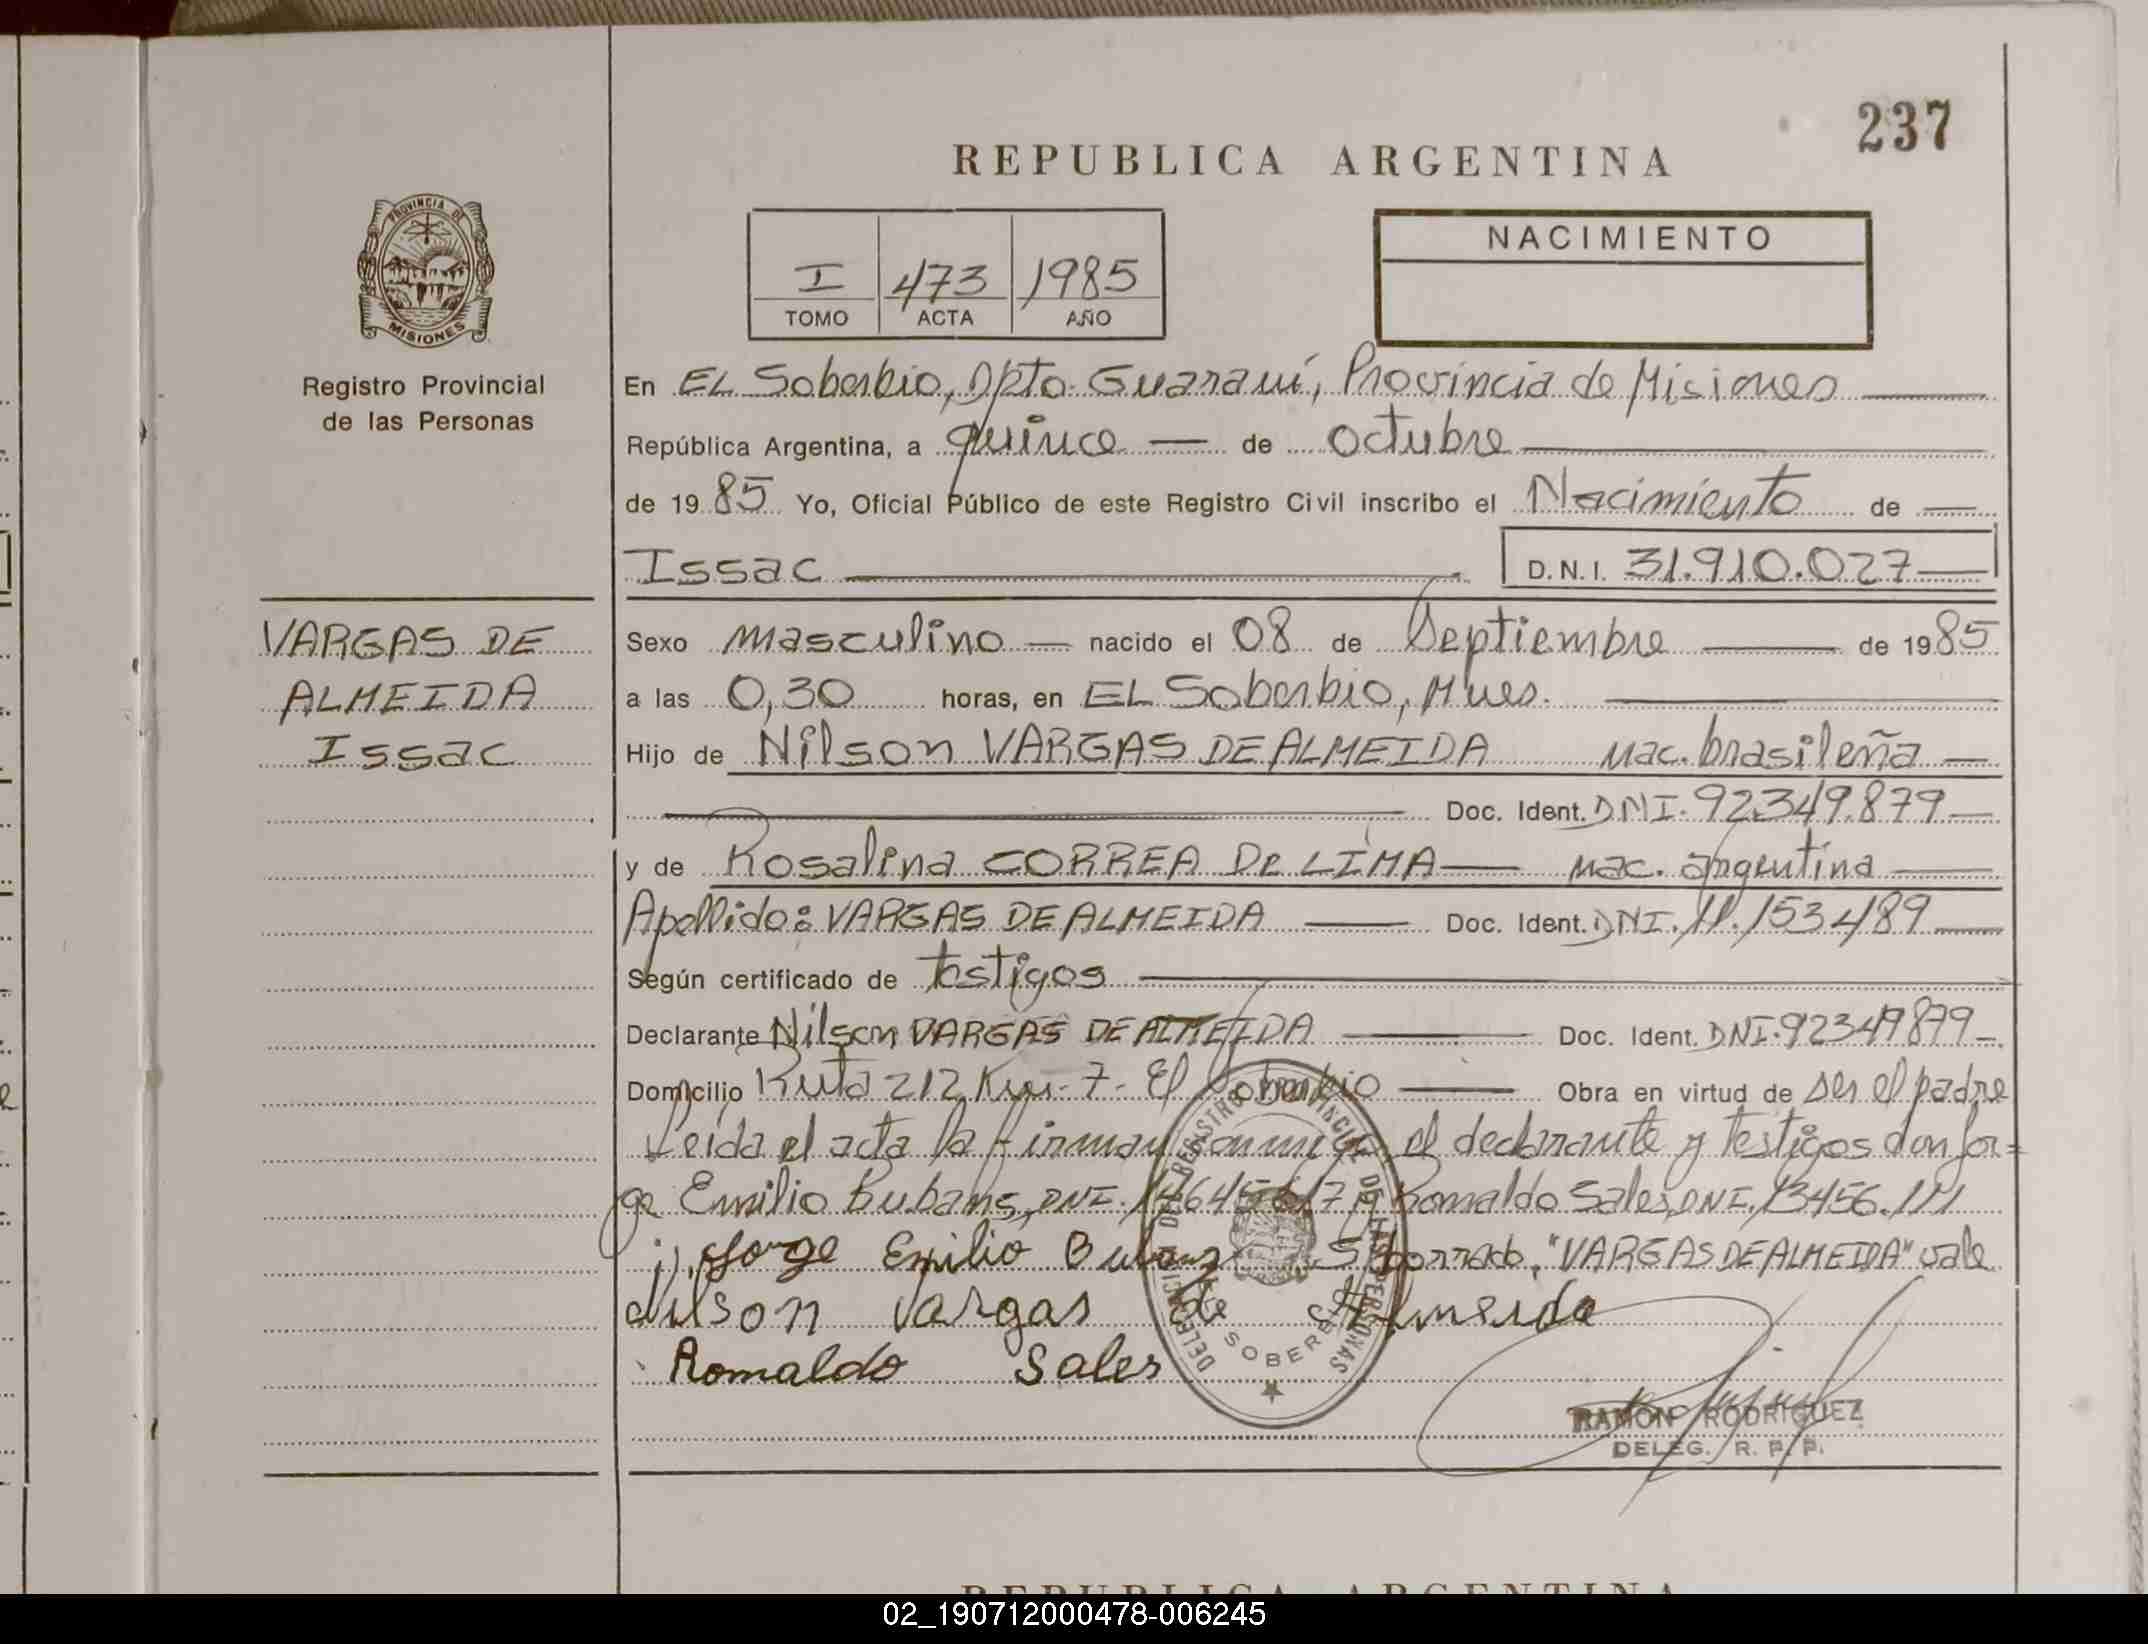 237
REPUBLICA ARGENTINA
PROVINCIA DE
MISIONES
Registro Provincial
de las Personas
I 473 1985
TOMO ACTA AÑO
NACIMIENTO
En EL Soberbio, Dpto. Guaraní, Provincia de Misiones
República Argentina, a quince de octubre
de 19 85 Yo, Oficial Público de este Registro Civil inscribo el Nacimiento de
Issac D.N.I. 31.910.027
VARGAS DE
ALMEIDA
Issac
Sexo masculino nacido el 08 de Septiembre de 19 85
a las 0,30 horas, en EL Soberbio, Mnes.
Hijo de Nilson VARGAS DE ALMEIDA nac. brasileña
Doc. Ident. DNI. 92.349.879
y de Rosalina CORREA De LIMA nac. argentina
Apellido: VARGAS DE ALMEIDA Doc. Ident. DNI. 11.153489
Según certificado de testigos
Declarante Nilson VARGAS DE ALMEIDA Doc. Ident. DNI. 92349879
Domicilio Ruta 212 Km. 7. El Soberbio Obra en virtud de ser el padre
Leida el acta la firman conmigo el declarante y testigos don Jor=
ge Emilio Bubans, DNI. y Romaldo Sales, DNI. 13456.111
Jorge Emilio Bubans S/borrado, "VARGAS DE ALMEIDA" vale
Nilson Vargas de Almeida
Romaldo Sales
DELEGACION DEL REGISTRO PROVINCIAL DE LAS PERSONAS
SOBERBIO
RAMON RODRIGUEZ
DELEG. R. P. P.
REPUBLICA ARGENTINA
02_190712000478-006245